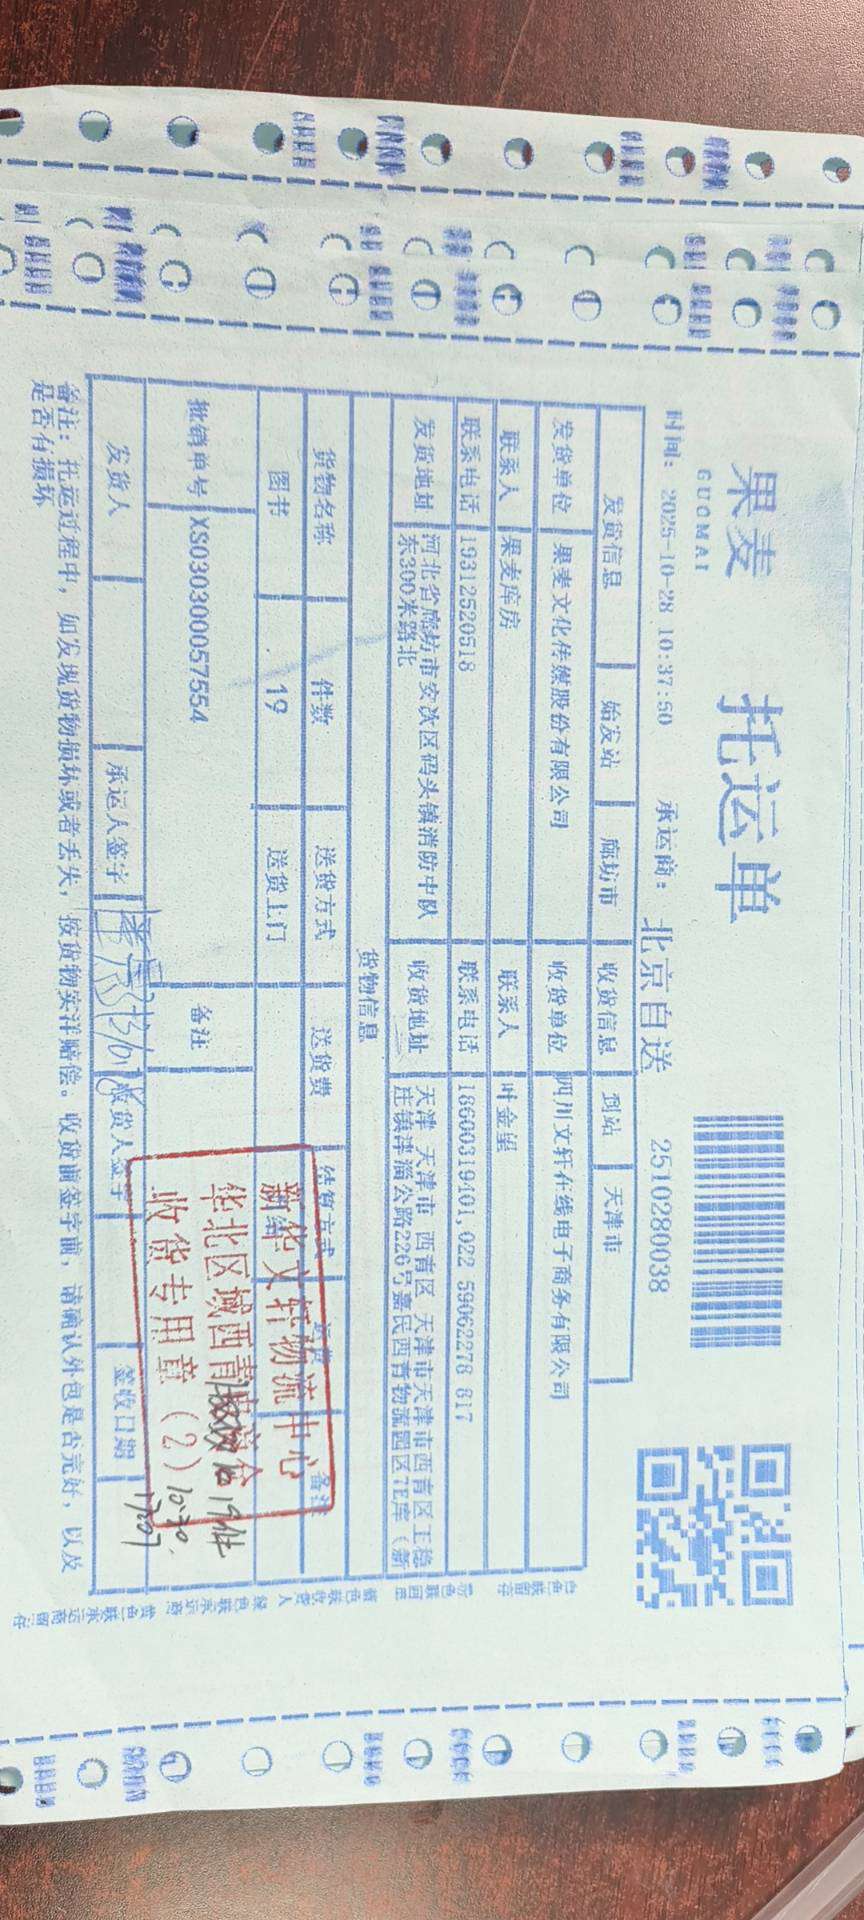 果麦
GUOMAI
托运单
2510280038
时间: 2025-10-28 10:37:50 承运商: 北京自送
发货信息 始发站 廊坊市 收货信息 到站 天津市
发货单位 果麦文化传媒股份有限公司 收货单位 四川文轩在线电子商务有限公司
联系人 果麦库房 联系人 叶金望
联系电话 19312520518 联系电话 18600319401,022 59062278 817
发货地址 河北省廊坊市安次区码头镇消防中队 收货地址 天津 天津市 西青区 天津市天津市西青区王稳
东300米路北 庄镇津淄公路226号嘉民西青物流园区7E库（新
货物信息
货物名称 件数 送货方式 送货费 结算方式 备注
图书 19 送货上门
批销单号 XS030300057554 备注
发货人 承运人签字 收货人签字 签收日期
新华文轩物流中心
华北区域西青
收货专用章（2）
19件
备注: 托运过程中, 如发现货物损坏或者丢失, 按货物实洋赔偿。收货前签字前, 请确认外包是否完好, 以及
是否有损坏